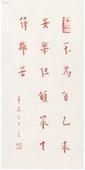 不為自己求
安樂但願眾生
得離苦